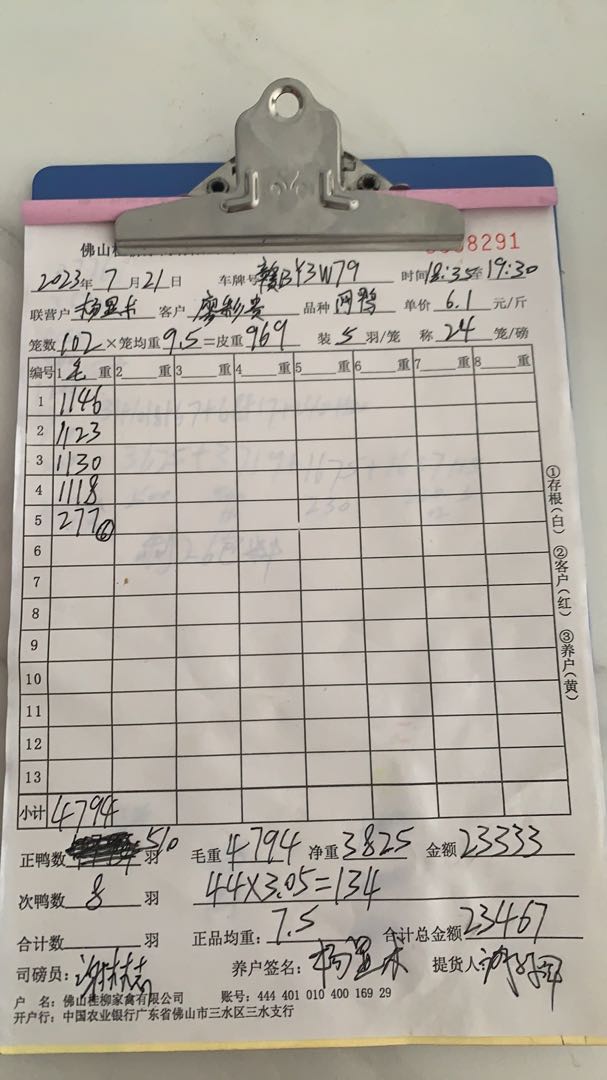 佛山桂柳
8291
2023年 7 月 21 日 车牌号 赣BY3W79 时间 18:35 至 19:30
联营户 杨显木 客户 廖彩贵 品种 网鸭 单价 6.1 元/斤
笼数 102 × 笼均重 9.5 = 皮重 969 装 5 羽/笼 称 24 笼/磅
编号 1 毛 重 2 重 3 重 4 重 5 重 6 重 7 重 8 重
1 1146
2 1123
3 1130
4 1118
5 277 ⑥
6
7
8
9
10
11
12
13
小计 4794
①存根(白) ②客户(红) ③养户(黄)
正鸭数 510 羽 毛重 4794 净重 3825 金额 23333
次鸭数 8 羽 44×3.05=134
合计数 羽 正品均重: 7.5 合计总金额 23467
司磅员: 养户签名: 杨显木 提货人:
户 名: 佛山桂柳家禽有限公司 账号: 444 401 010 400 169 29
开户行: 中国农业银行广东省佛山市三水区三水支行